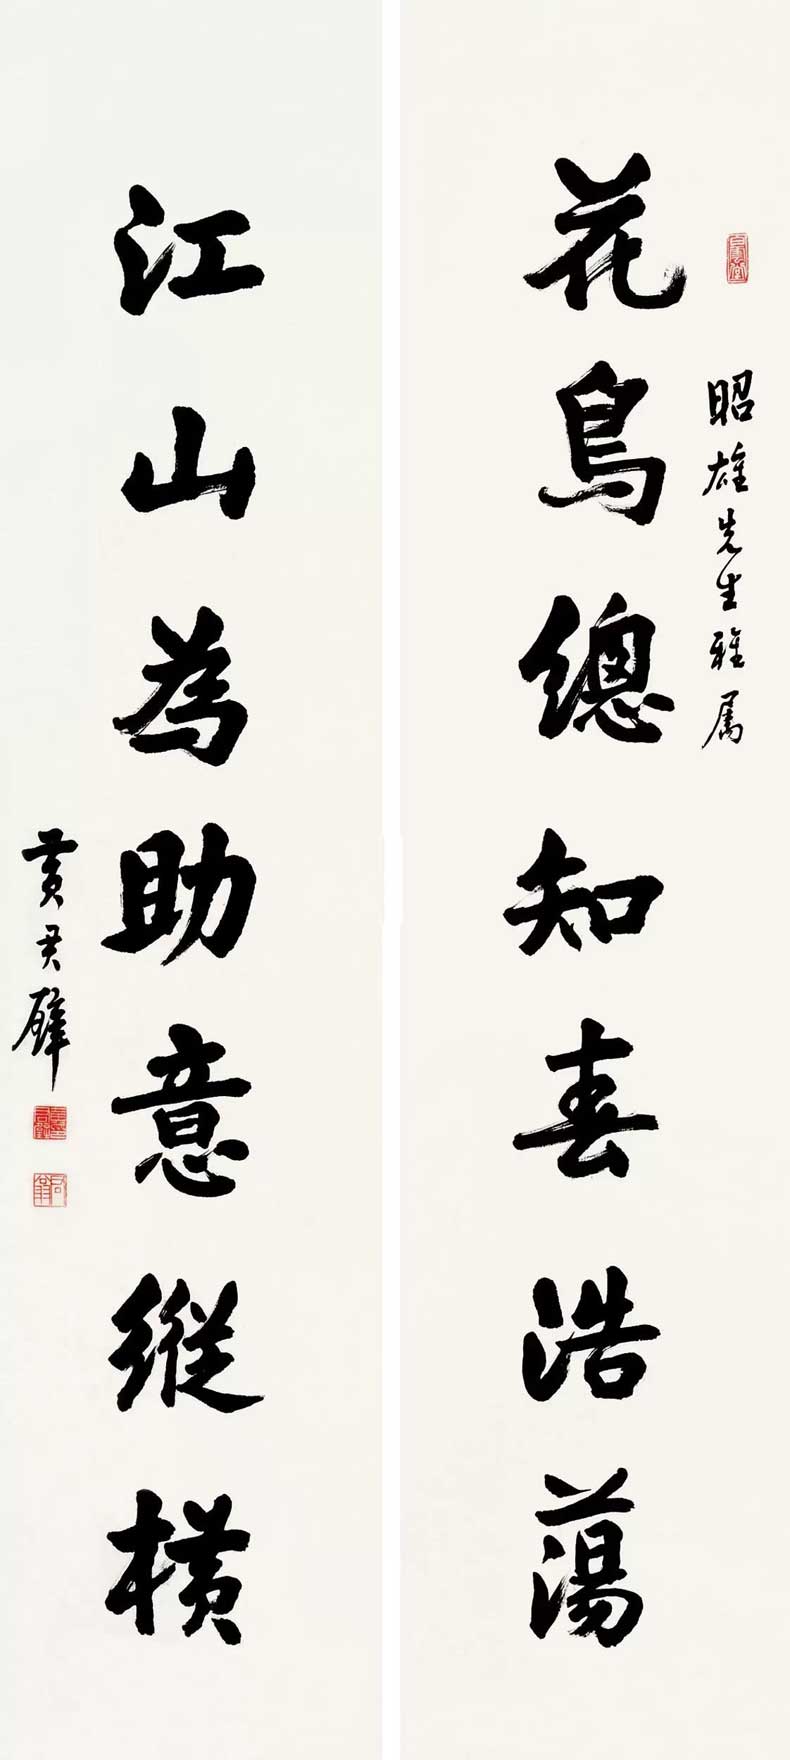 昭雄先生雅属
花鳥總知春浩蕩
江山為助意縱橫
黃君璧